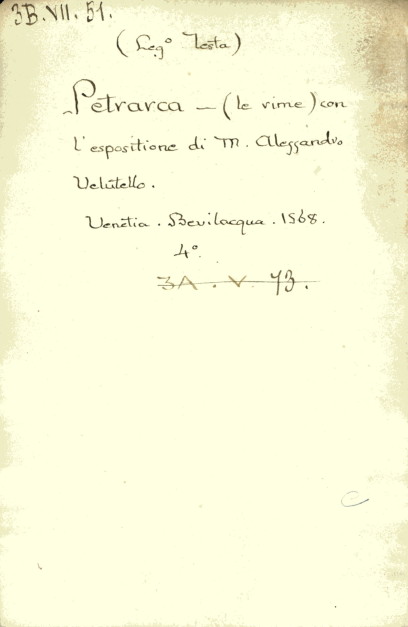 3B.VII.51.
(Leg° Testa)
Petrarca — (le rime) con
l'espositione di M. Alessandro
Velutello.
Venetia. Bevilacqua. 1568.
4°.
3A. V. 73.